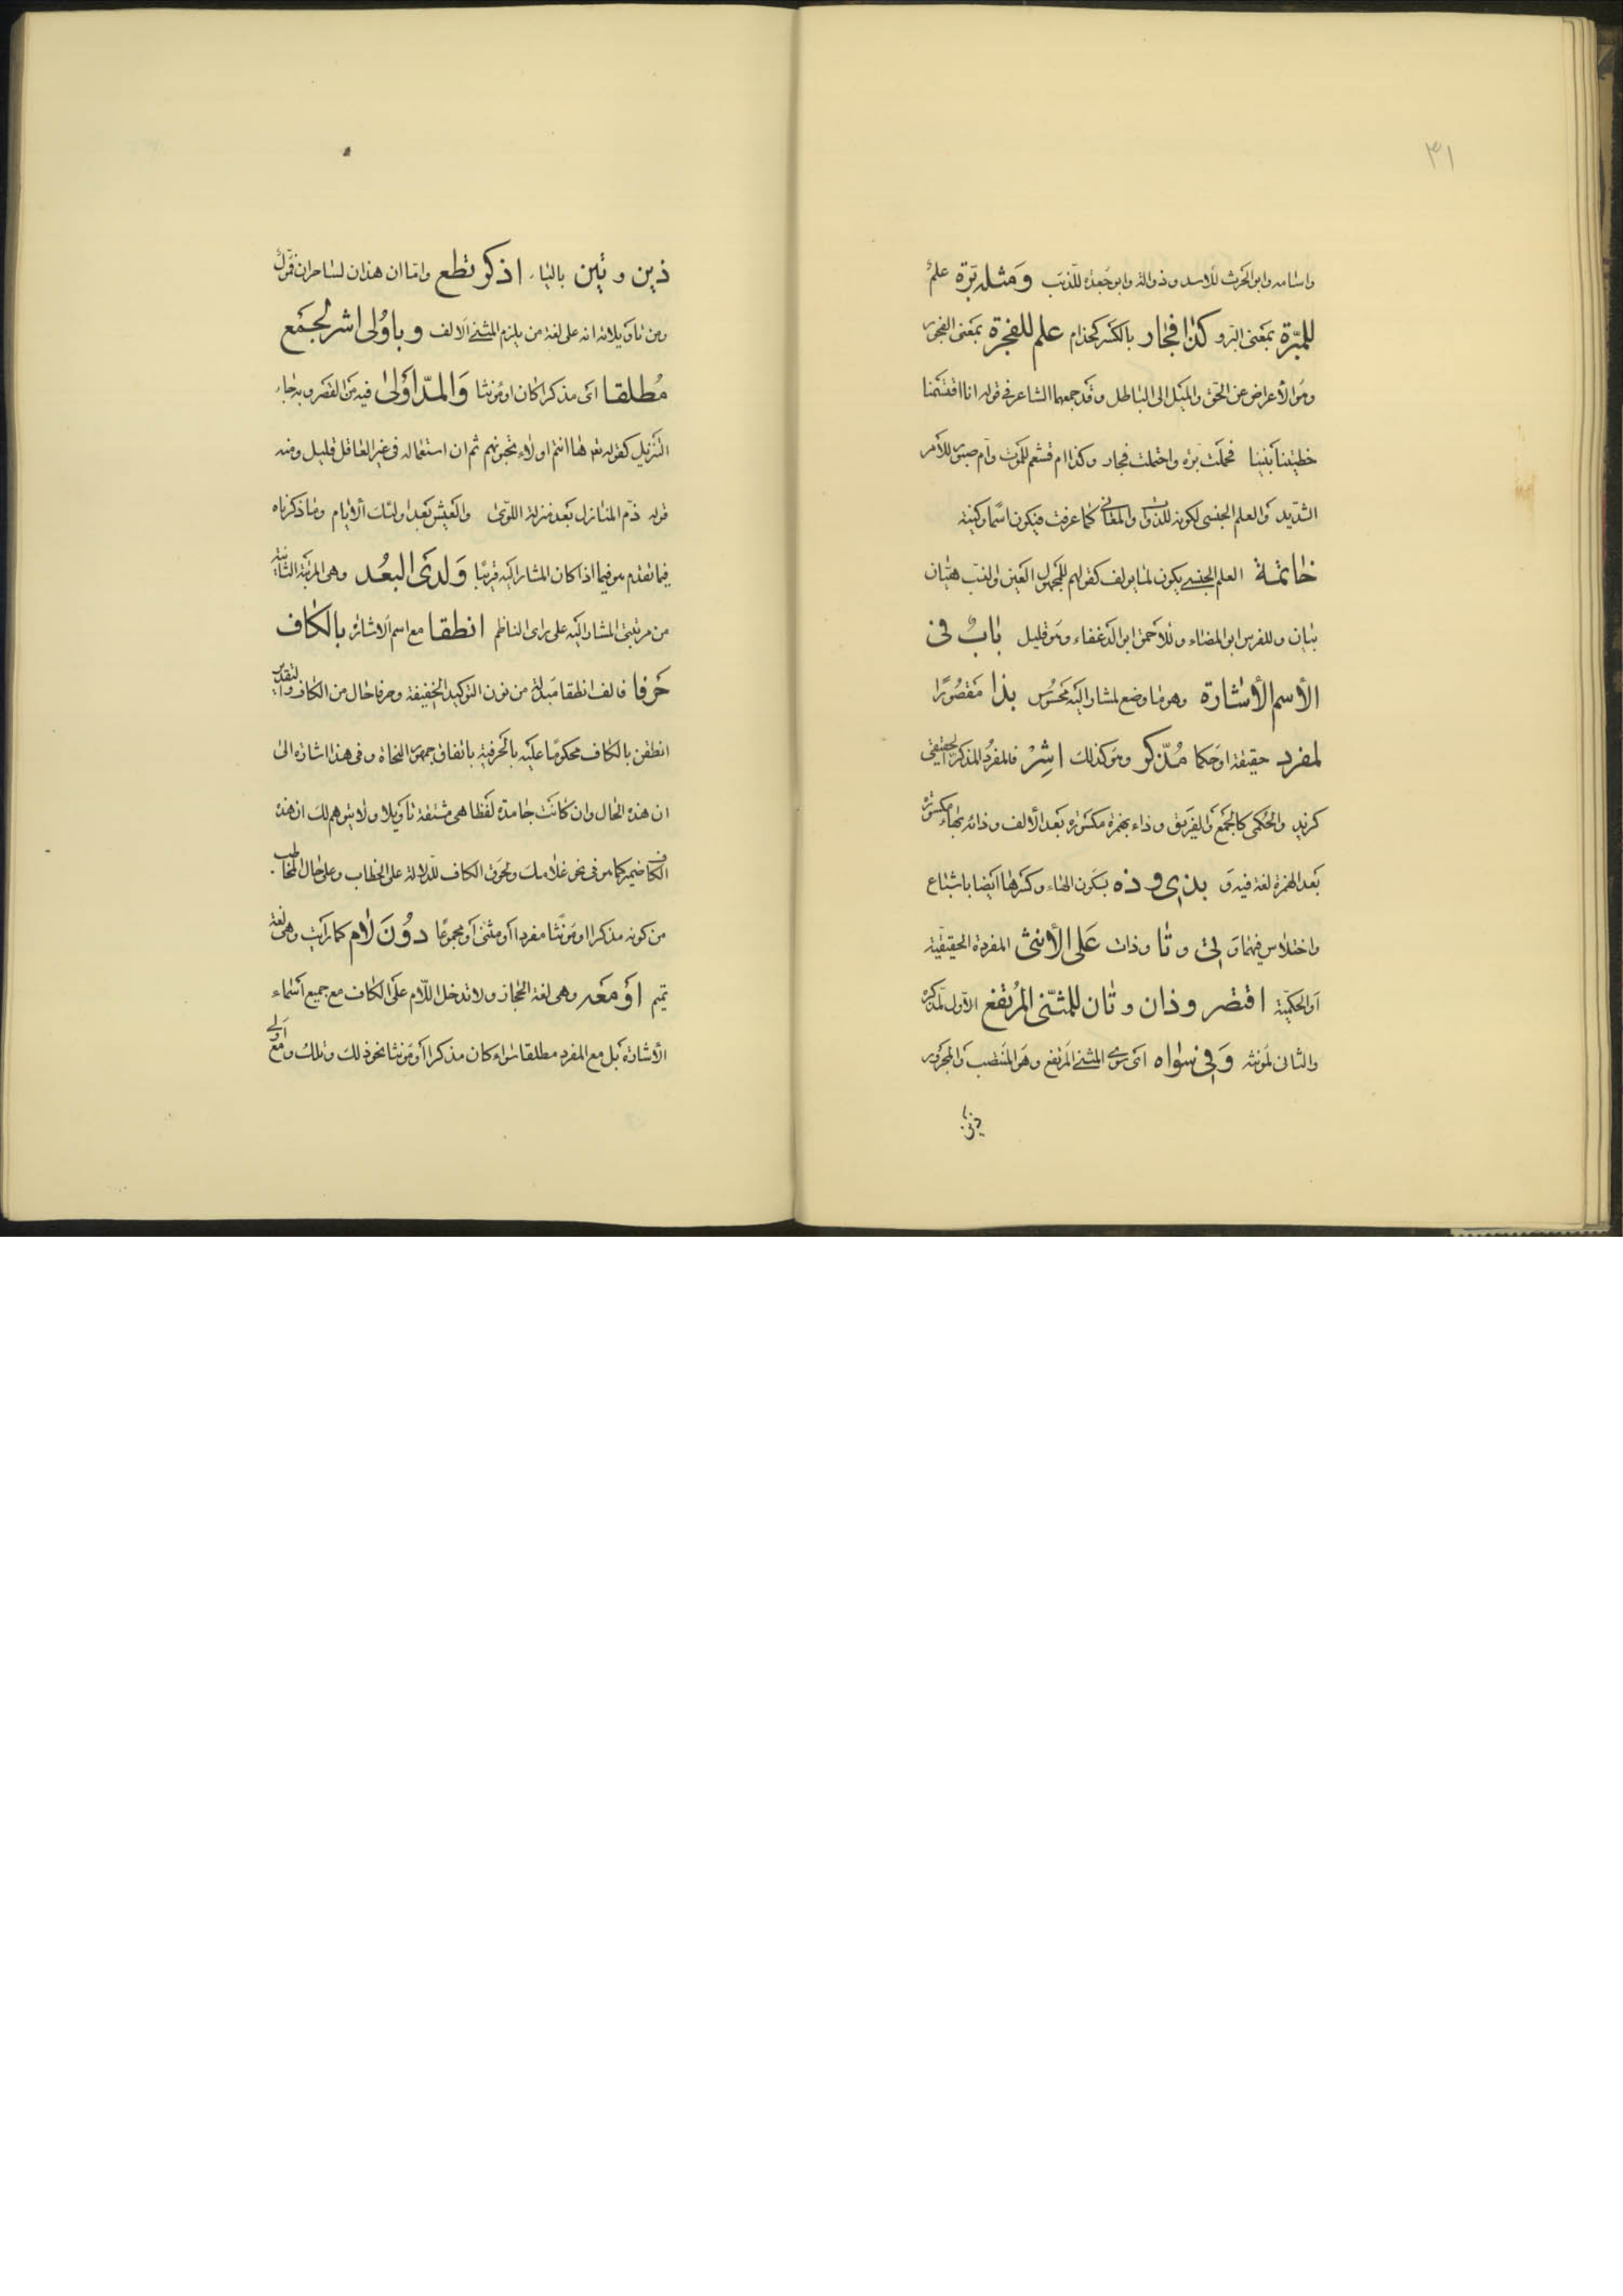 ٣١
واسامه وابو الحرث للاسد وذوالة وابو جعدة للذئب وَمثله برّة علمٌ
للمبّرة بمعنى البرّ و كذا فجار بالكسر كحذام علم للفجرة بمعنى الفجور
وهو الأعراض عن الحق والميل الى الباطل وقد جمعهما الشاعر فى قوله انا اقتسمنا
خطيتنا بيننا فحملت برّه واحتملت فجار وكذا ام قشعم للموت وام صبور للأمر
الشديد والعلم الجنسى لكونه للذوات والمعانى كما عرفت فيكون اسمًا وكنية
خاتمة العلم الجنسى يكون لما يولف كقولهم للمجهول العين والنسب هيّان
بن بيان وللفرس ابو المضاء وللأحمق ابو الدغفاء وهو قليل بابٌ فى
الأسم الأشارة وهو ما وضع لمشار اليه محسوس بذا مقصورًا
لمفرد حقيقة او حكما مُذّكر وهو كذلك اشِرْ فالمفرد المذكر الحقيقى
كزيد والحكمى كالجمع والفريق وذاء بهمزة مكسورة بعد الألف وذائه بهاء مكسورة
بعد الهمزة لغة فيه و بذى وذه بسكون الهاء وكسرها ايضا باشباع
واختلاس فيهما و تى و تا وذات عَلى الأنثى المفردة الحقيقية
او الحكمية اقتصر وذان و تان للمثنّى المُرتفع الاول لمذكره
والثانى لمونثه وَفى سواه اى سوى المثنى المرتفع وهو المنتصب والمجرور
ذين
ذين و تين بالياء اذكر تطع واما ان هذان لساحران فمؤول
ومن تاويلاته انه على لغة من يلزم المثنى الالف و باوُلى اشر لجمع
مُطلقا اى مذكرا كان او مونثا وَالمدّ اولى فيه من القصر وبه جاء
التنزيل كقوله تع ها انتم اولاء تحبونهم ثم ان استعماله فى غير العاقل قليل ومنه
قوله ذمّ المنازل بعد منزلة اللوى والعيش بعد اولئك الأيام وما ذكرناه
فيما تقدم هو فيما اذا كان المشار اليه قريبًا وَلدَى البعُد وهى المرتبة الثانية
من مرتبتى المشار اليه على راى الناظم انطقا مع اسم الاشارة بالكاف
حَرفا فالف انطقا مبدلة من نون التوكيد الخفيفة وحرفا حال من الكاف والتقدير
انطقن بالكاف محكومًا عليه بالحرفية باتفاق جمهور النحاة وفى هذا اشارة الى
ان هذه الحال وان كانت جامدة لفظا هى مشتقة تاويلا ولا يتوهم لك ان هذه
الكاف ضمير كما هو فى نحو غلامك ولحوق الكاف للدلالة على الخطاب وعلى حال المخاطب
من كونه مذكرا او مونثا مفردا او مثنى او مجموعًا دوُنَ لام كما رايت وهى لغة
تميم اوَ معه وهى لغة الحجاز ولا تدخل اللام على الكاف مع جميع اسماء
الأشارة بل مع المفرد مطلقا سواء كان مذكرا او مونثا نحو ذلك وتلك ومع اولى